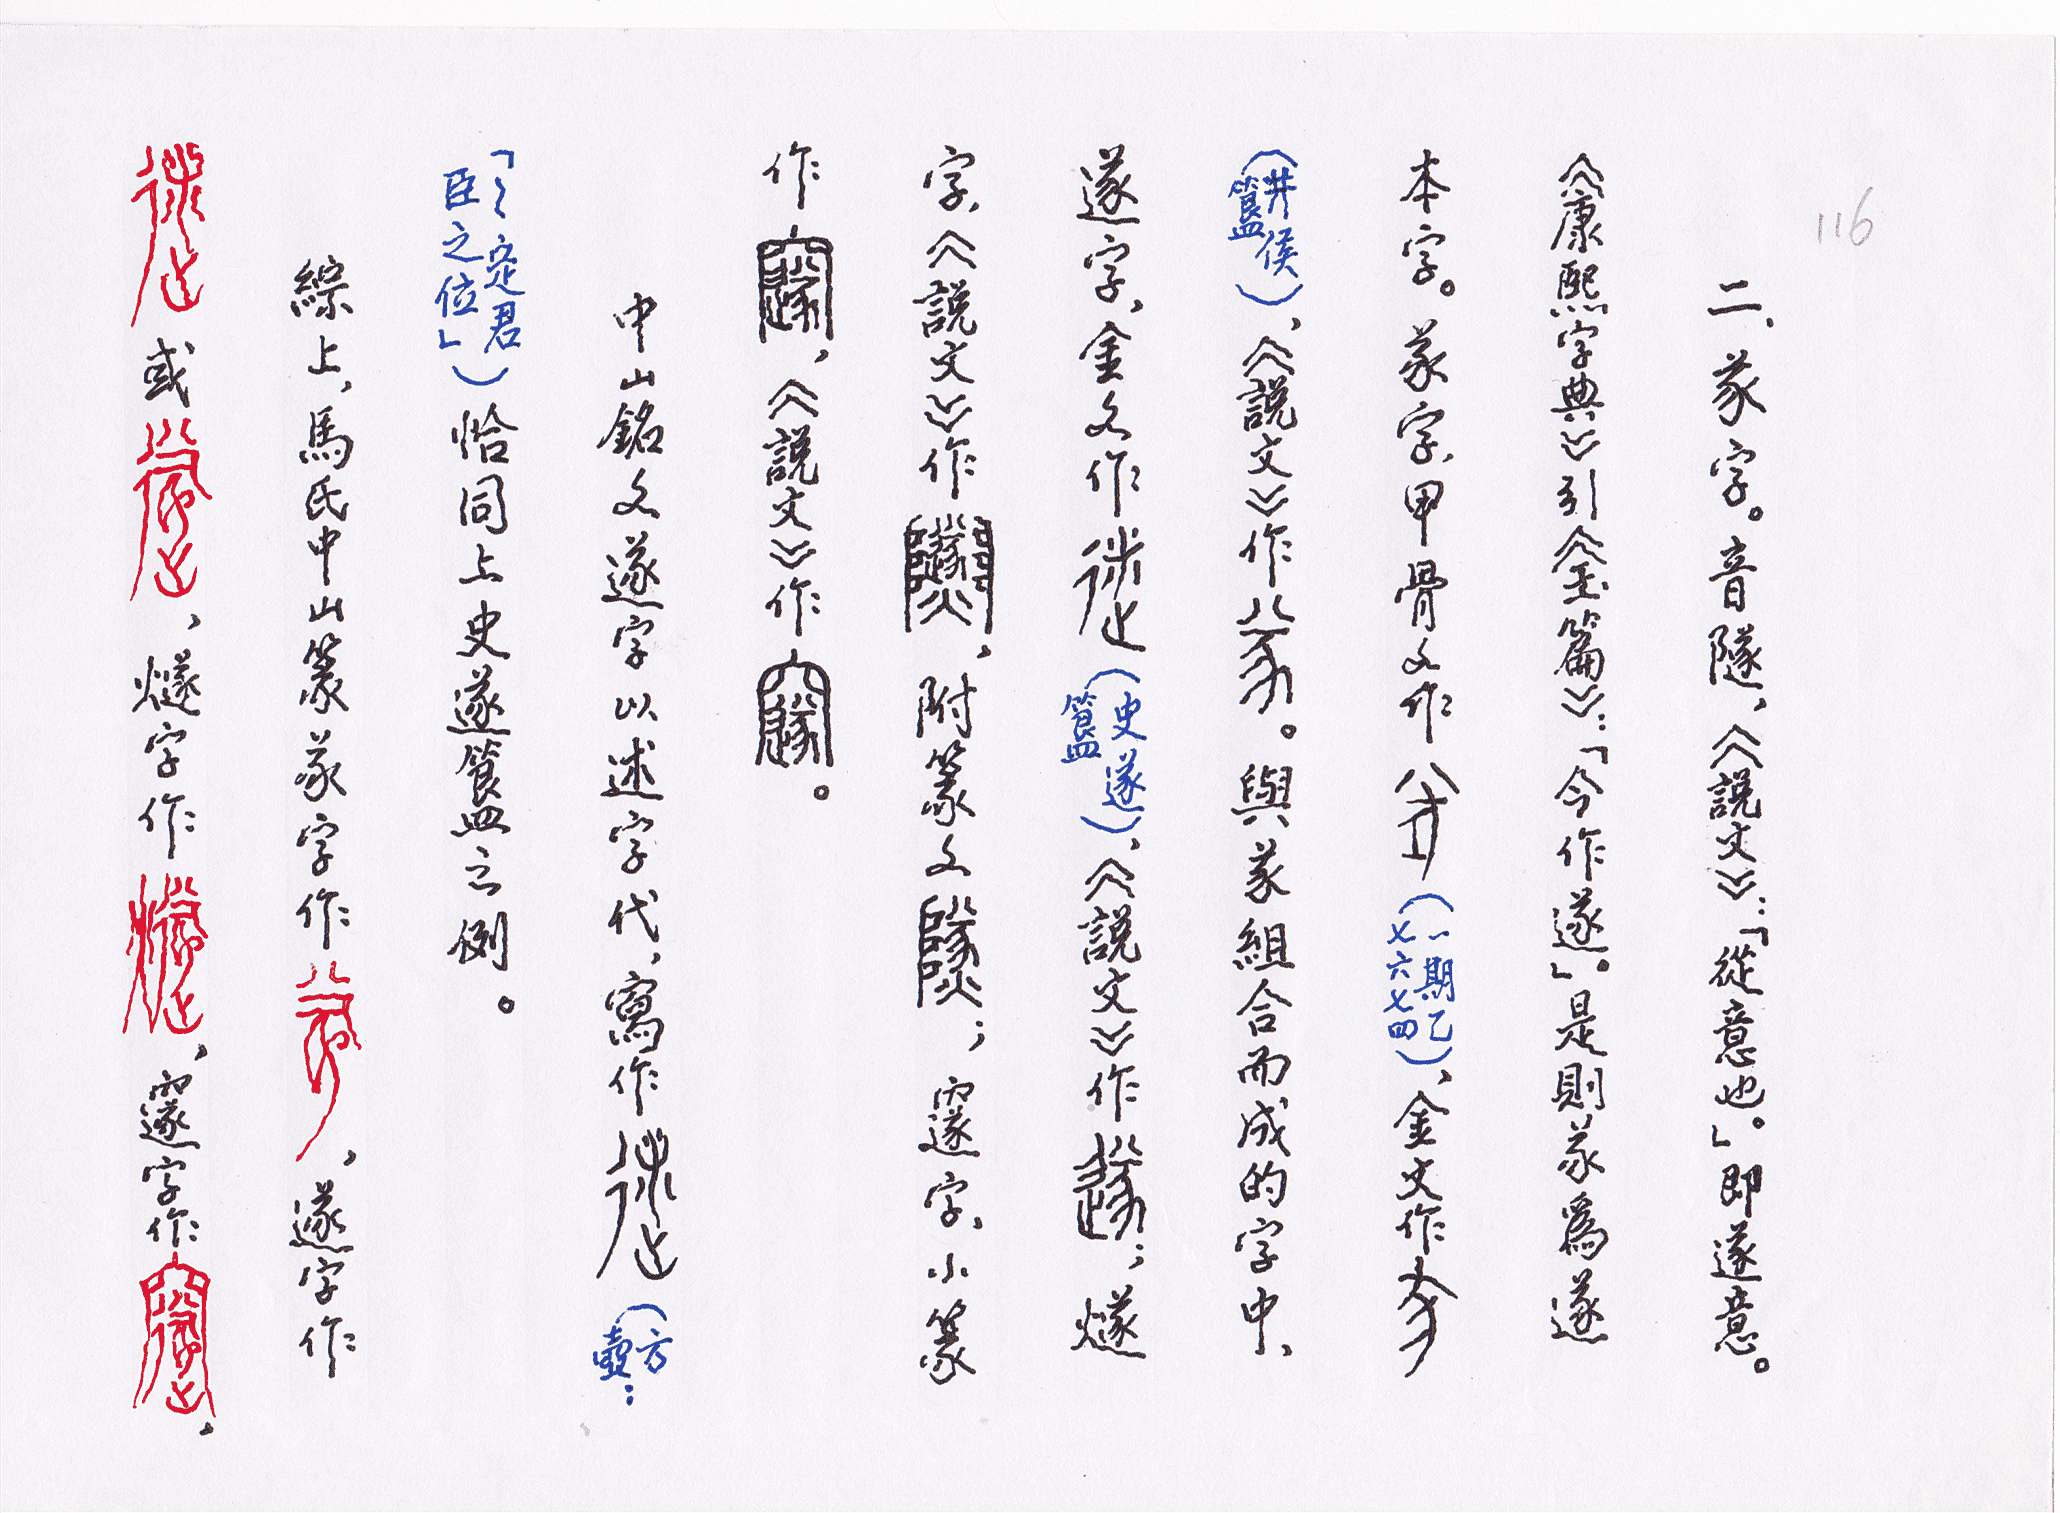 116
二、㒸字。音隧、《說文》：「從意也。」即遂意。
《康熙字典》引《玉篇》：「今作遂」。是則㒸爲遂
本字。㒸字、甲骨文作（一期乙七六七四）、金文作
（井侯簋）、《說文》作。與㒸組合而成的字中、
遂字、金文作（史遂簋）、《說文》作；燧
字、《說文》作，附篆文；邃字、小篆
作，《說文》作。
中山銘文遂字以述字代，寫作（方壺：
「〻定君臣之位」）恰同上史遂簋之例。
綜上，馬氏中山篆㒸字作，遂字作
或，燧字作，邃字作，